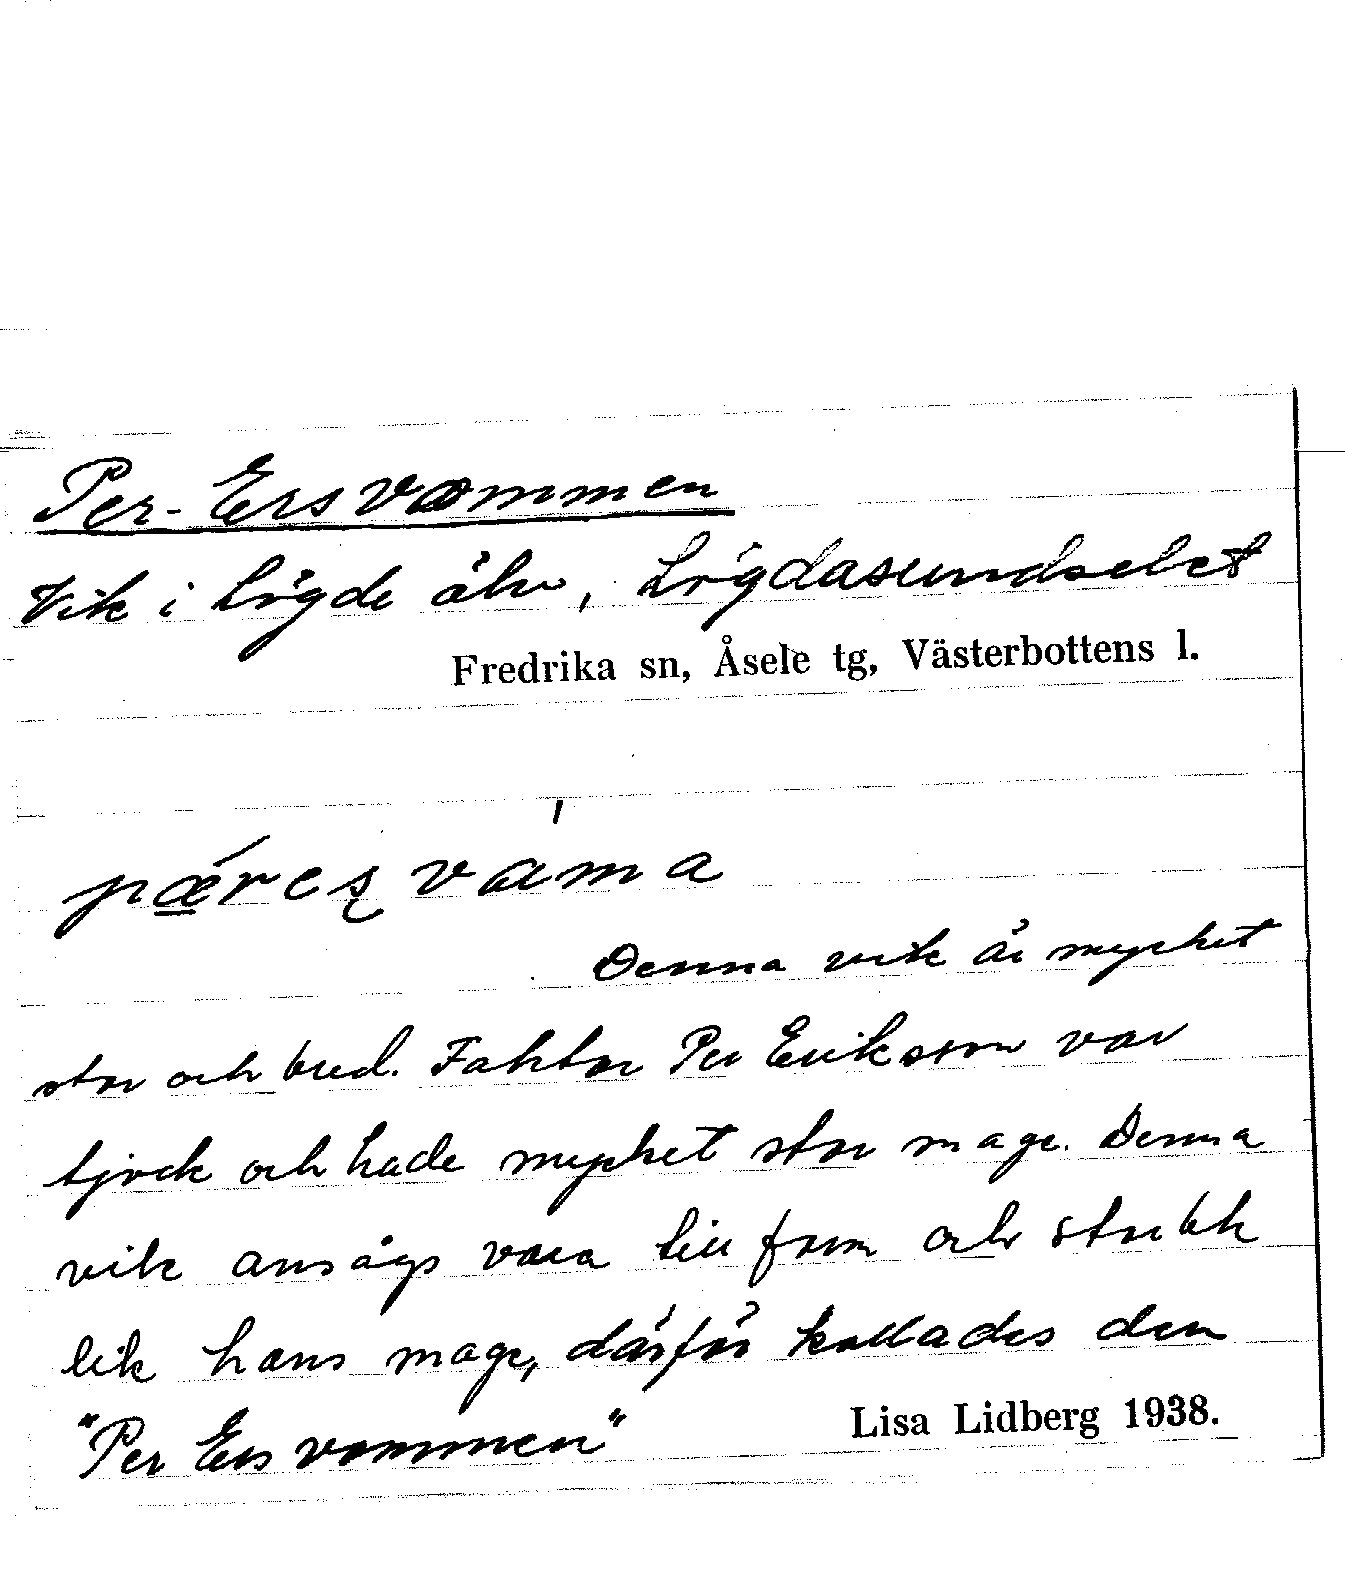 Per-Ersvommen
Vik i Lögde älv, Lögdasundselet
Fredrika sn, Åsele tg, Västerbottens l.
pǽres vama
Denna vik är mycket
stor och bred. Faktor Per Eriksson var
tjock och hade mycket stor mage. Denna
vik ansågs vara till form och storlek
lik hans mage, därför kallades den
"Per Ers vommen"
Lisa Lidberg 1938.